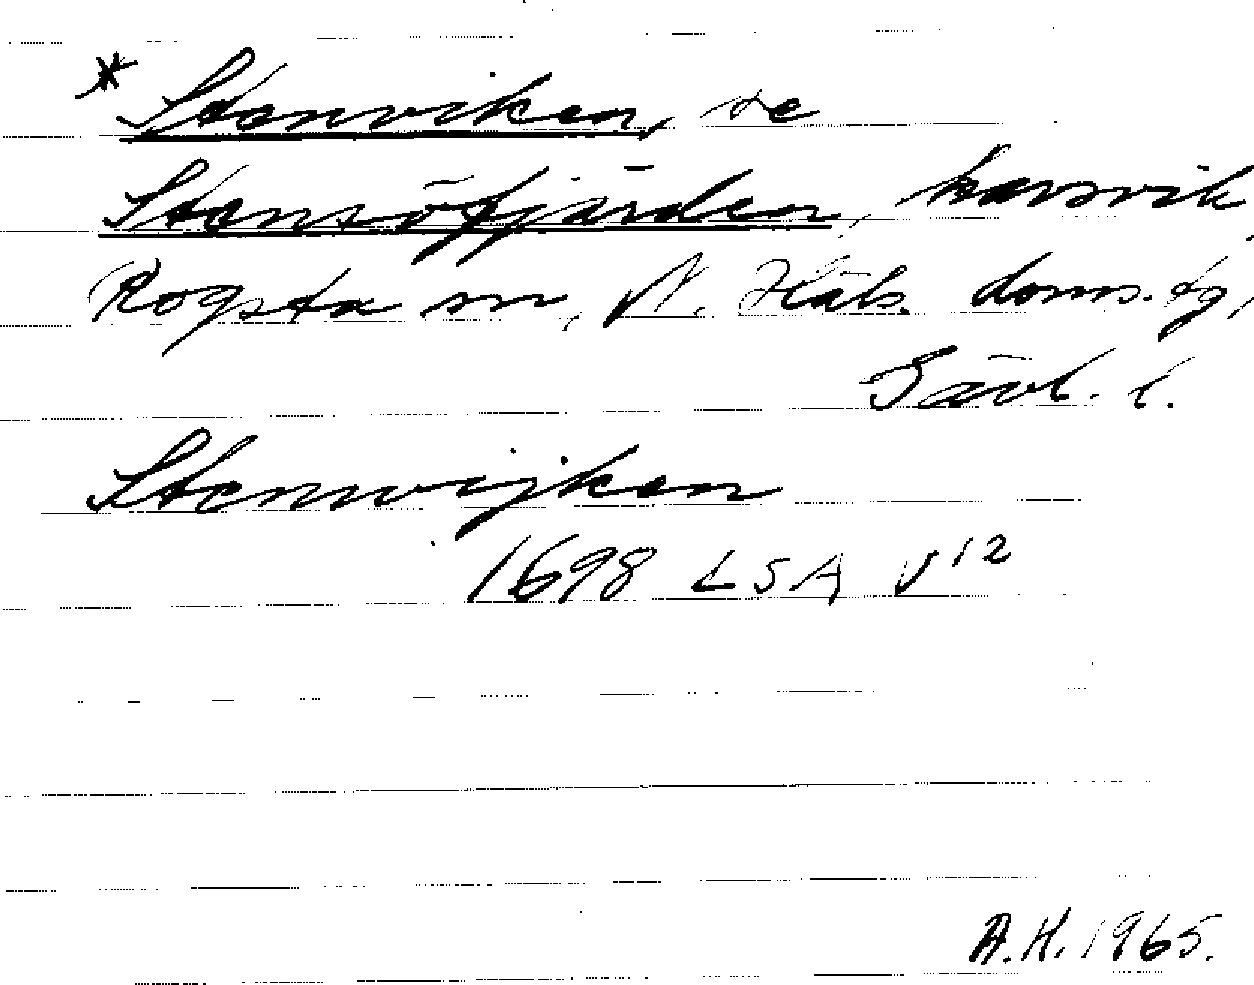 * Stenviken, se
Stensöfjärden, havsvik,
Rogsta sn, N. Häls. doms.tg,
Gävl. l.
Stenwijken
1698 LSA V 12
A.H. 1965.